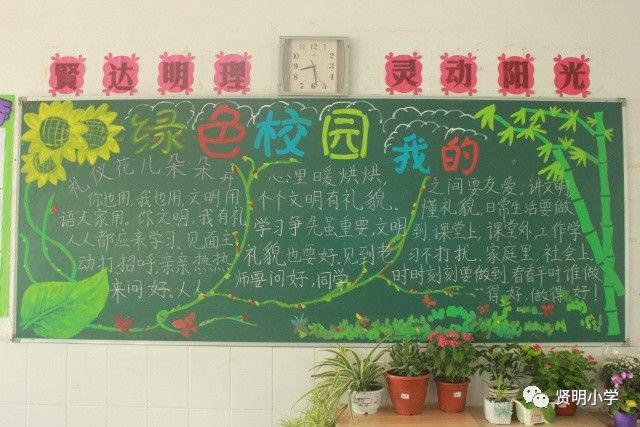 賢达明理
灵动阳光
绿色校园 我的
礼仪花儿朵朵开
你也用,我也用,文明用
语大家用。你文明,我有礼
人人都应来学习,见面主
动打招呼,亲亲热热
来问好。人人
心里暖烘烘,
个个文明有礼貌。
学习争先虽重要,文明
礼貌也要好,见到老
师要问好,同学
之间要友爱。讲文明
懂礼貌,日常生活要做
到,课堂上,课堂外,工作学
习不打扰。家庭里,社会上,
时时刻刻要做到,看看平时谁做
得好,做得好!
贤明小学